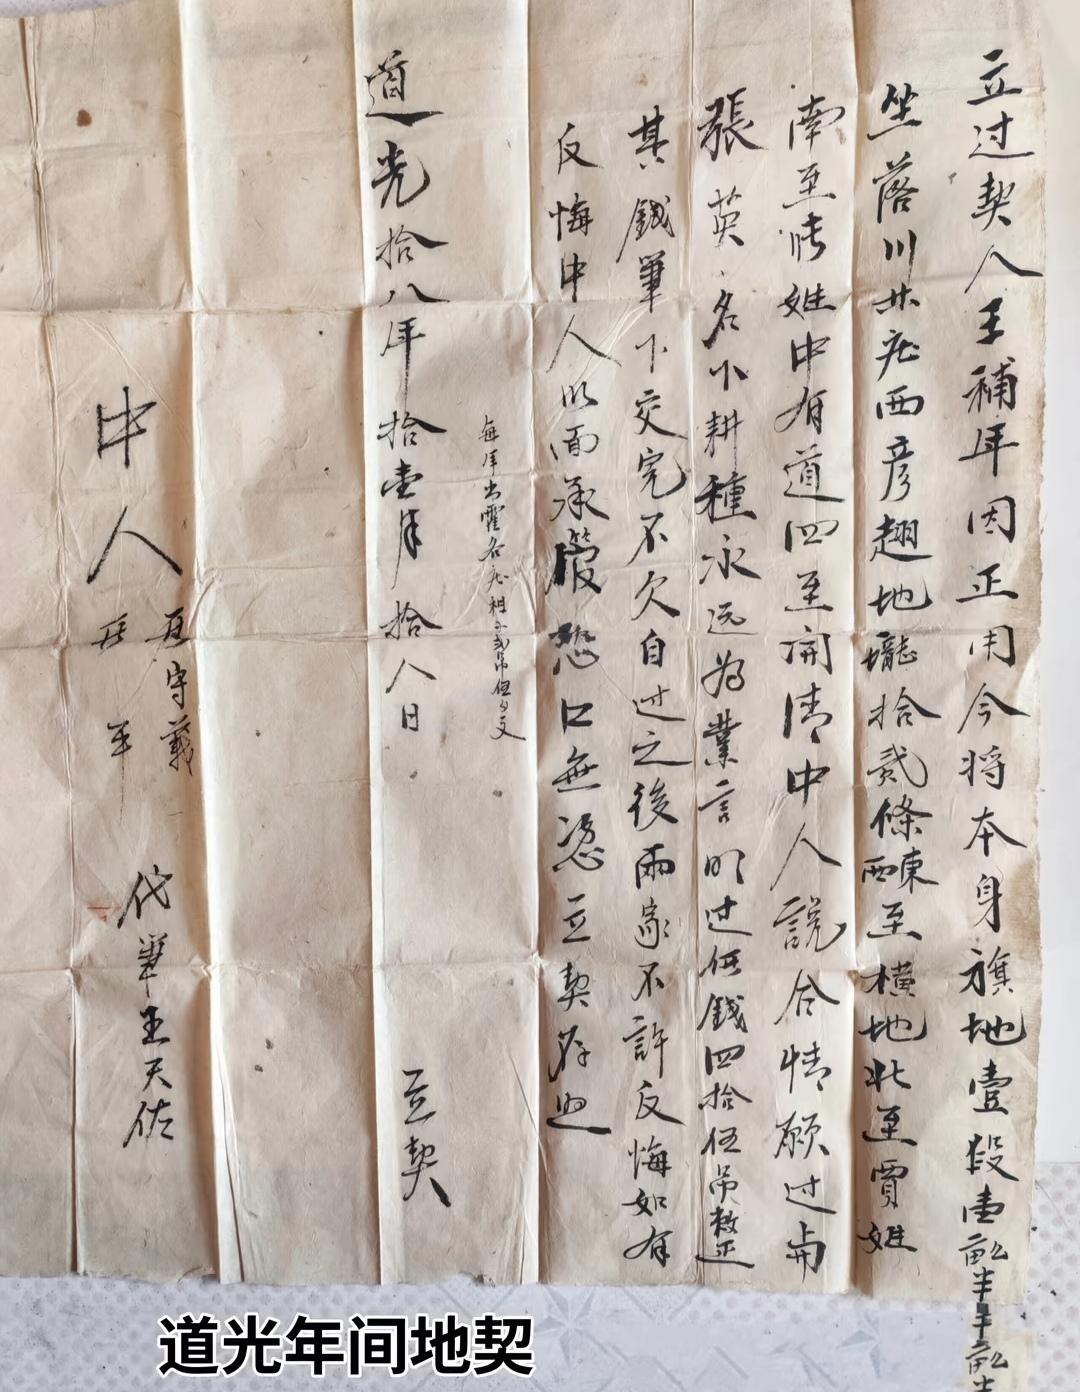 立过契人王補年因正用今将本身旗地壹段壹畝半
坐落川井庄西彦趟地壠拾貳條東西至横地北至賈姓
南至姓中有道四至開清中人説合情願过与
張英名下耕種永远為業言明过伍錢四拾伍吊整
其錢筆下交完不欠自过之後兩家不許反悔如有
反悔中人以面承管恐口無憑立契存照
每年出霍各庄租
道光拾八年拾壹月拾八日 立契
中人
守義
平
代筆王天佐
道光年间地契